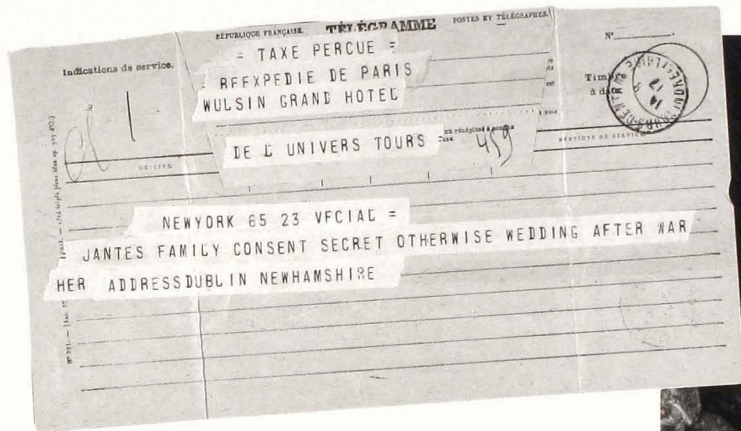 RÉPUBLIQUE FRANÇAISE. TÉLÉGRAMME POSTES ET TÉLÉGRAPHES.
Indications de service.
N°
= TAXE PERCUE =
REEXPEDIE DE PARIS
WULSIN GRAND HOTEL
Timbre à date
DE L UNIVERS TOURS
459
ORIGINE.
MENTIONS DE SERVICE.
NEWYORK 65 23 VFCIAL =
JANTES FAMILY CONSENT SECRET OTHERWISE WEDDING AFTER WAR
HER ADDRESSDUBLIN NEWHAMSHIRE